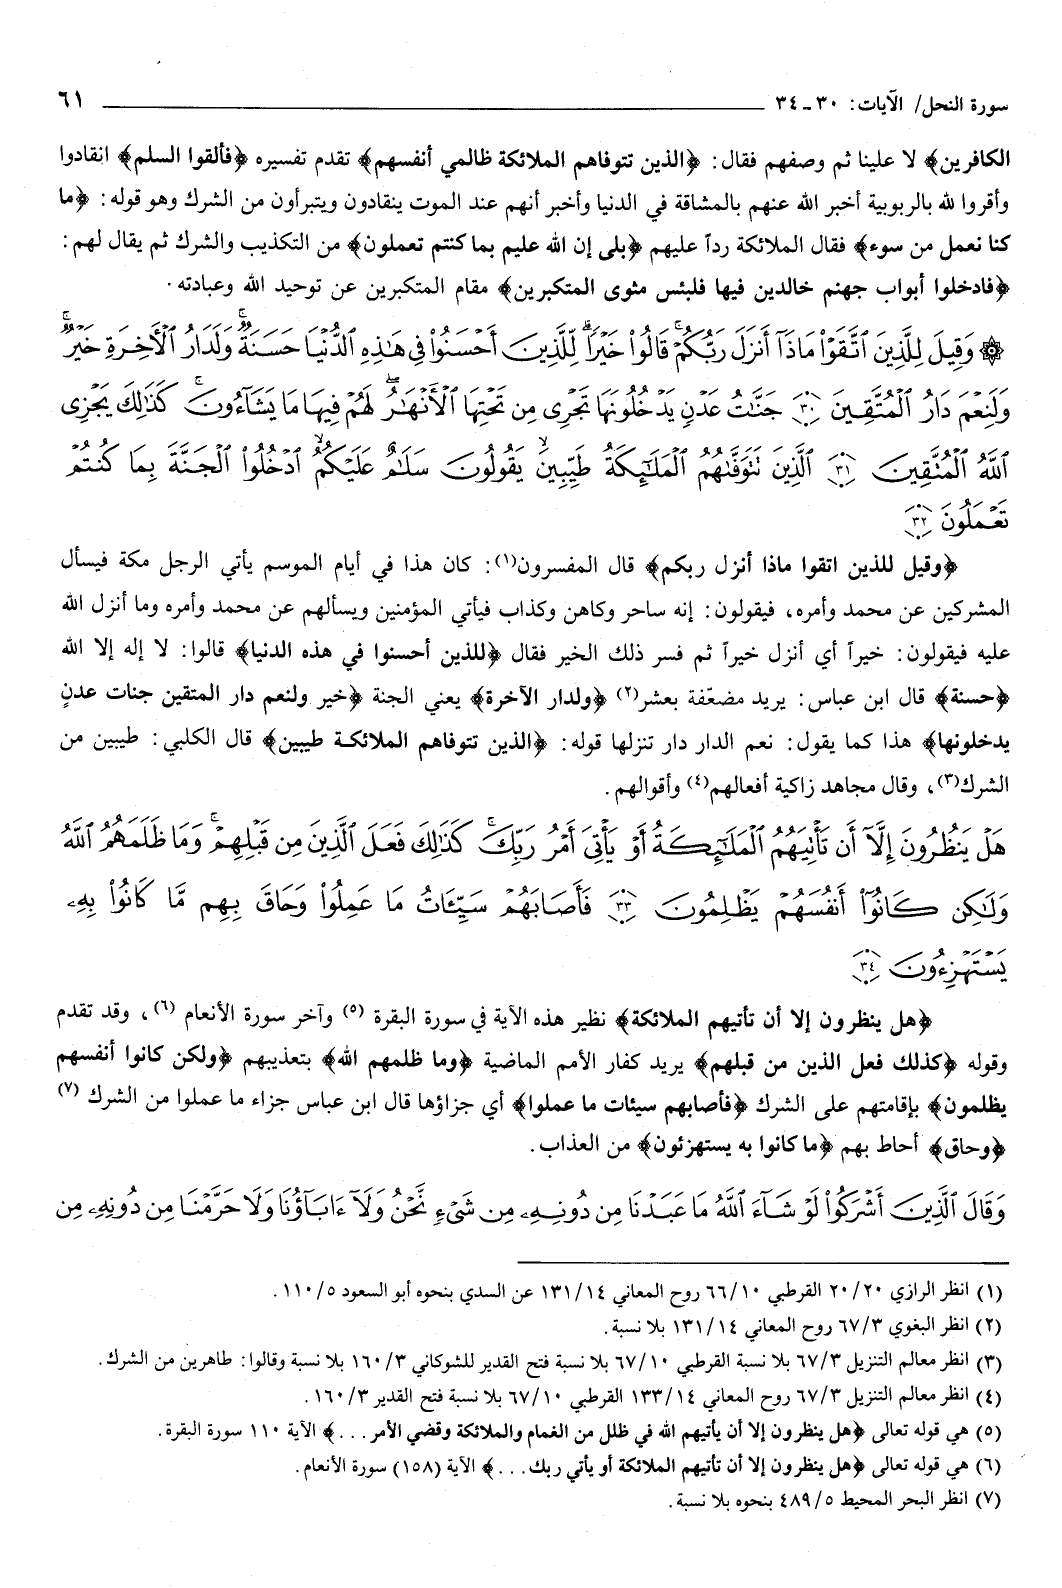 سورة النحل/ الآيات: ٣٠ ـ ٣٤ ٦١
الكافرين﴾ لا علينا ثم وصفهم فقال: ﴿الذين تتوفاهم الملائكة ظالمي أنفسهم﴾ تقدم تفسيره ﴿فألقوا السلم﴾ انقادوا
وأقروا لله بالربوبية أخبر الله عنهم بالمشاقة في الدنيا وأخبر أنهم عند الموت ينقادون ويتبرأون من الشرك وهو قوله: ﴿ما
كنا نعمل من سوء﴾ فقال الملائكة رداً عليهم ﴿بلى إن الله عليم بما كنتم تعملون﴾ من التكذيب والشرك ثم يقال لهم:
﴿فادخلوا أبواب جهنم خالدين فيها فلبئس مثوى المتكبرين﴾ مقام المتكبرين عن توحيد الله وعبادته.
۞ وَقِيلَ لِلَّذِينَ ٱتَّقَوۡاْ مَاذَآ أَنزَلَ رَبُّكُمۡۚ قَالُواْ خَيۡرٗاۗ لِّلَّذِينَ أَحۡسَنُواْ فِي هَٰذِهِ ٱلدُّنۡيَا حَسَنَةٞۚ وَلَدَارُ ٱلۡأٓخِرَةِ خَيۡرٞۚ
وَلَنِعۡمَ دَارُ ٱلۡمُتَّقِينَ ﴿٣٠﴾ جَنَّٰتُ عَدۡنٖ يَدۡخُلُونَهَا تَجۡرِي مِن تَحۡتِهَا ٱلۡأَنۡهَٰرُۖ لَهُمۡ فِيهَا مَا يَشَآءُونَۚ كَذَٰلِكَ يَجۡزِي
ٱللَّهُ ٱلۡمُتَّقِينَ ﴿٣١﴾ ٱلَّذِينَ تَتَوَفَّىٰهُمُ ٱلۡمَلَٰٓئِكَةُ طَيِّبِينَۙ يَقُولُونَ سَلَٰمٌ عَلَيۡكُمُۙ ٱدۡخُلُواْ ٱلۡجَنَّةَ بِمَا كُنتُمۡ
تَعۡمَلُونَ ﴿٣٢﴾
﴿وقيل للذين اتقوا ماذا أنزل ربكم﴾ قال المفسرون(١): كان هذا في أيام الموسم يأتي الرجل مكة فيسأل
المشركين عن محمد وأمره، فيقولون: إنه ساحر وكاهن وكذاب فيأتي المؤمنين ويسألهم عن محمد وأمره وما أنزل الله
عليه فيقولون: خيراً أي أنزل خيراً ثم فسر ذلك الخير فقال ﴿للذين أحسنوا في هذه الدنيا﴾ قالوا: لا إله إلا الله
﴿حسنة﴾ قال ابن عباس: يريد مضعّفة بعشر(٢) ﴿ولدار الآخرة﴾ يعني الجنة ﴿خير ولنعم دار المتقين جنات عدنٍ
يدخلونها﴾ هذا كما يقول: نعم الدار دار تنزلها قوله: ﴿الذين تتوفاهم الملائكة طيبين﴾ قال الكلبي: طيبين من
الشرك(٣)، وقال مجاهد زاكية أفعالهم(٤) وأقوالهم.
هَلۡ يَنظُرُونَ إِلَّآ أَن تَأۡتِيَهُمُ ٱلۡمَلَٰٓئِكَةُ أَوۡ يَأۡتِيَ أَمۡرُ رَبِّكَۚ كَذَٰلِكَ فَعَلَ ٱلَّذِينَ مِن قَبۡلِهِمۡۚ وَمَا ظَلَمَهُمُ ٱللَّهُ
وَلَٰكِن كَانُوٓاْ أَنفُسَهُمۡ يَظۡلِمُونَ ﴿٣٣﴾ فَأَصَابَهُمۡ سَيِّـَٔاتُ مَا عَمِلُواْ وَحَاقَ بِهِم مَّا كَانُواْ بِهِۦ
يَسۡتَهۡزِءُونَ ﴿٣٤﴾
﴿هل ينظرون إلا أن تأتيهم الملائكة﴾ نظير هذه الآية في سورة البقرة (٥) وآخر سورة الأنعام (٦)، وقد تقدم
وقوله ﴿كذلك فعل الذين من قبلهم﴾ يريد كفار الأمم الماضية ﴿وما ظلمهم الله﴾ بتعذيبهم ﴿ولكن كانوا أنفسهم
يظلمون﴾ بإقامتهم على الشرك ﴿فأصابهم سيئات ما عملوا﴾ أي جزاؤها قال ابن عباس جزاء ما عملوا من الشرك (٧)
﴿وحاق﴾ أحاط بهم ﴿ما كانوا به يستهزئون﴾ من العذاب.
وَقَالَ ٱلَّذِينَ أَشۡرَكُواْ لَوۡ شَآءَ ٱللَّهُ مَا عَبَدۡنَا مِن دُونِهِۦ مِن شَيۡءٖ نَّحۡنُ وَلَآ ءَابَآؤُنَا وَلَا حَرَّمۡنَا مِن دُونِهِۦ مِن
(١) انظر الرازي ٢٠/٢٠ القرطبي ٦٦/١٠ روح المعاني ١٣١/١٤ عن السدي بنحوه أبو السعود ١١٠/٥.
(٢) انظر البغوي ٦٧/٣ روح المعاني ١٣١/١٤ بلا نسبة.
(٣) انظر معالم التنزيل ٦٧/٣ بلا نسبة القرطبي ٦٧/١٠ بلا نسبة فتح القدير للشوكاني ١٦٠/٣ بلا نسبة وقالوا: طاهرين من الشرك.
(٤) انظر معالم التنزيل ٦٧/٣ روح المعاني ١٣٣/١٤ القرطبي ٦٧/١٠ بلا نسبة فتح القدير ١٦٠/٣.
(٥) هي قوله تعالى ﴿هل ينظرون إلا أن يأتيهم الله في ظلل من الغمام والملائكة وقضي الأمر...﴾ الآية ١١٠ سورة البقرة.
(٦) هي قوله تعالى ﴿هل ينظرون إلا أن تأتيهم الملائكة أو يأتي ربك...﴾ الآية (١٥٨) سورة الأنعام.
(٧) انظر البحر المحيط ٤٨٩/٥ بنحوه بلا نسبة.